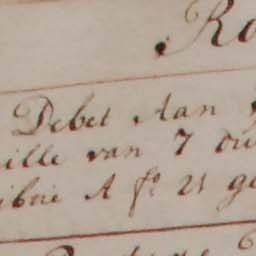 Ro
Debet Aan
ille van 7 du
ibrie A fº 21 ge